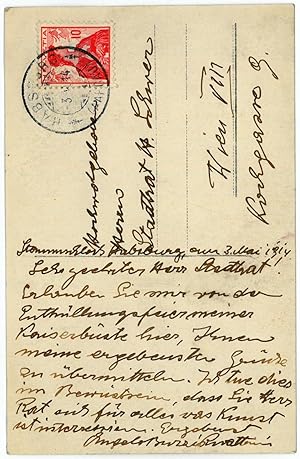 10
HABSBURG
Hochwohlgeboren
Herrn
Stadtrat H. Schwer
Wien VIII
Kochgasse 9.
Habsburg, am 3. Mai 1914
Sehr geehrter Herr Stadtrat
Erlauben Sie mir von der
Enthüllungsfeier meiner
Kaiserbüste hier, Ihnen
meine ergebensten Grüße
zu übermitteln. Ich tue dies
im Bewusstsein, dass Sie Herr
Rat sich für alles was Kunst
ist interessieren. Ergebenst